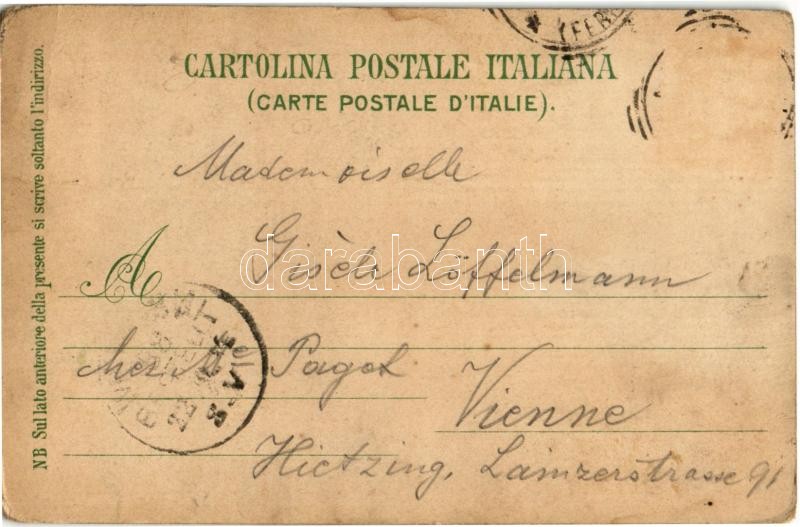 (FER
CARTOLINA POSTALE ITALIANA
(CARTE POSTALE D'ITALIE).
Mademoiselle
A Gisèle Löffelmann
chez M. Pagot
Vienne
Hietzing, Lainzerstrasse 91
NB Sul lato anteriore della presente si scrive soltanto l'indirizzo.
darabanth